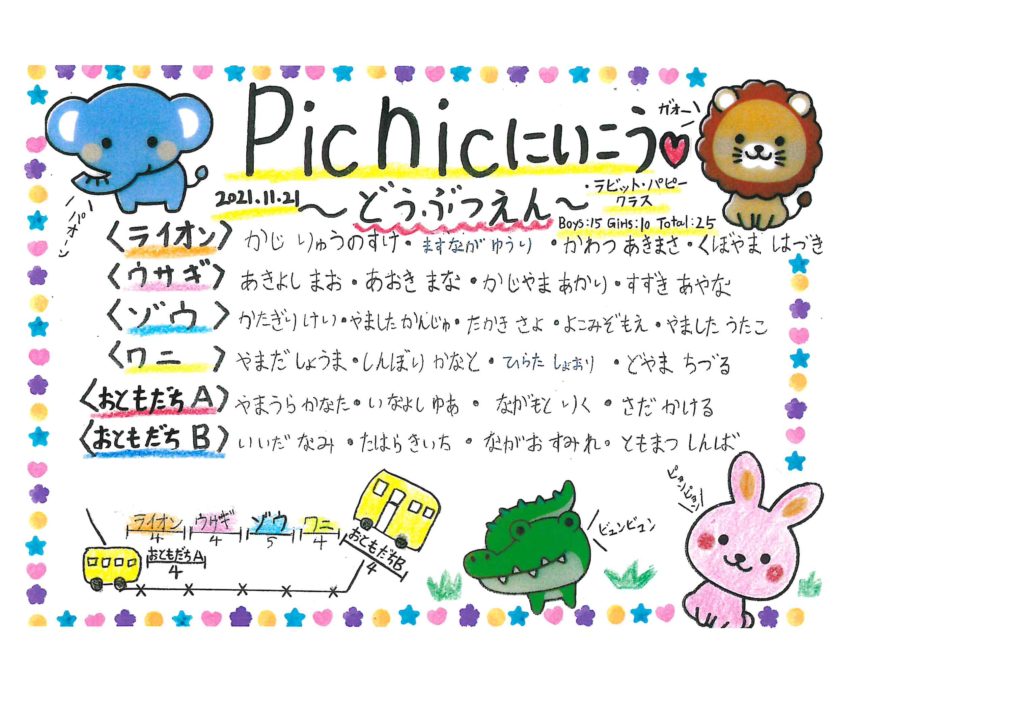 Picnicにいこう
ガオー
パオーン
2021.11.21 〜どうぶつえん〜
・ラビット・パピー
クラス
Boys:15 Girls:10 Total:25
〈ライオン〉 かじ りゅうのすけ・ますなが ゆうり・かわつ あきまさ・くぼやま はづき
〈ウサギ〉 あきよし まお・あおき まな・かじやま あかり・すずき あやな
〈ゾウ〉 かたぎり けい・やました かんじゅ・たかき さよ・よこみぞもえ・やました うたこ
〈ワニ〉 やまだ しょうま・しんぼり かなと・ひらた しょおり・どやま ちづる
〈おともだち A〉 やまうら かなた・いなよし ゆあ・ながもと りく・さだ かける
〈おともだち B〉 いいだ なみ・たはら きいち・ながお すみれ・ともまつ しんば
ピョンピョン
ビュンビュン
ライオン ウサギ ゾウ ワニ
4 4 5 4
おともだちA
4
おともだちB
4